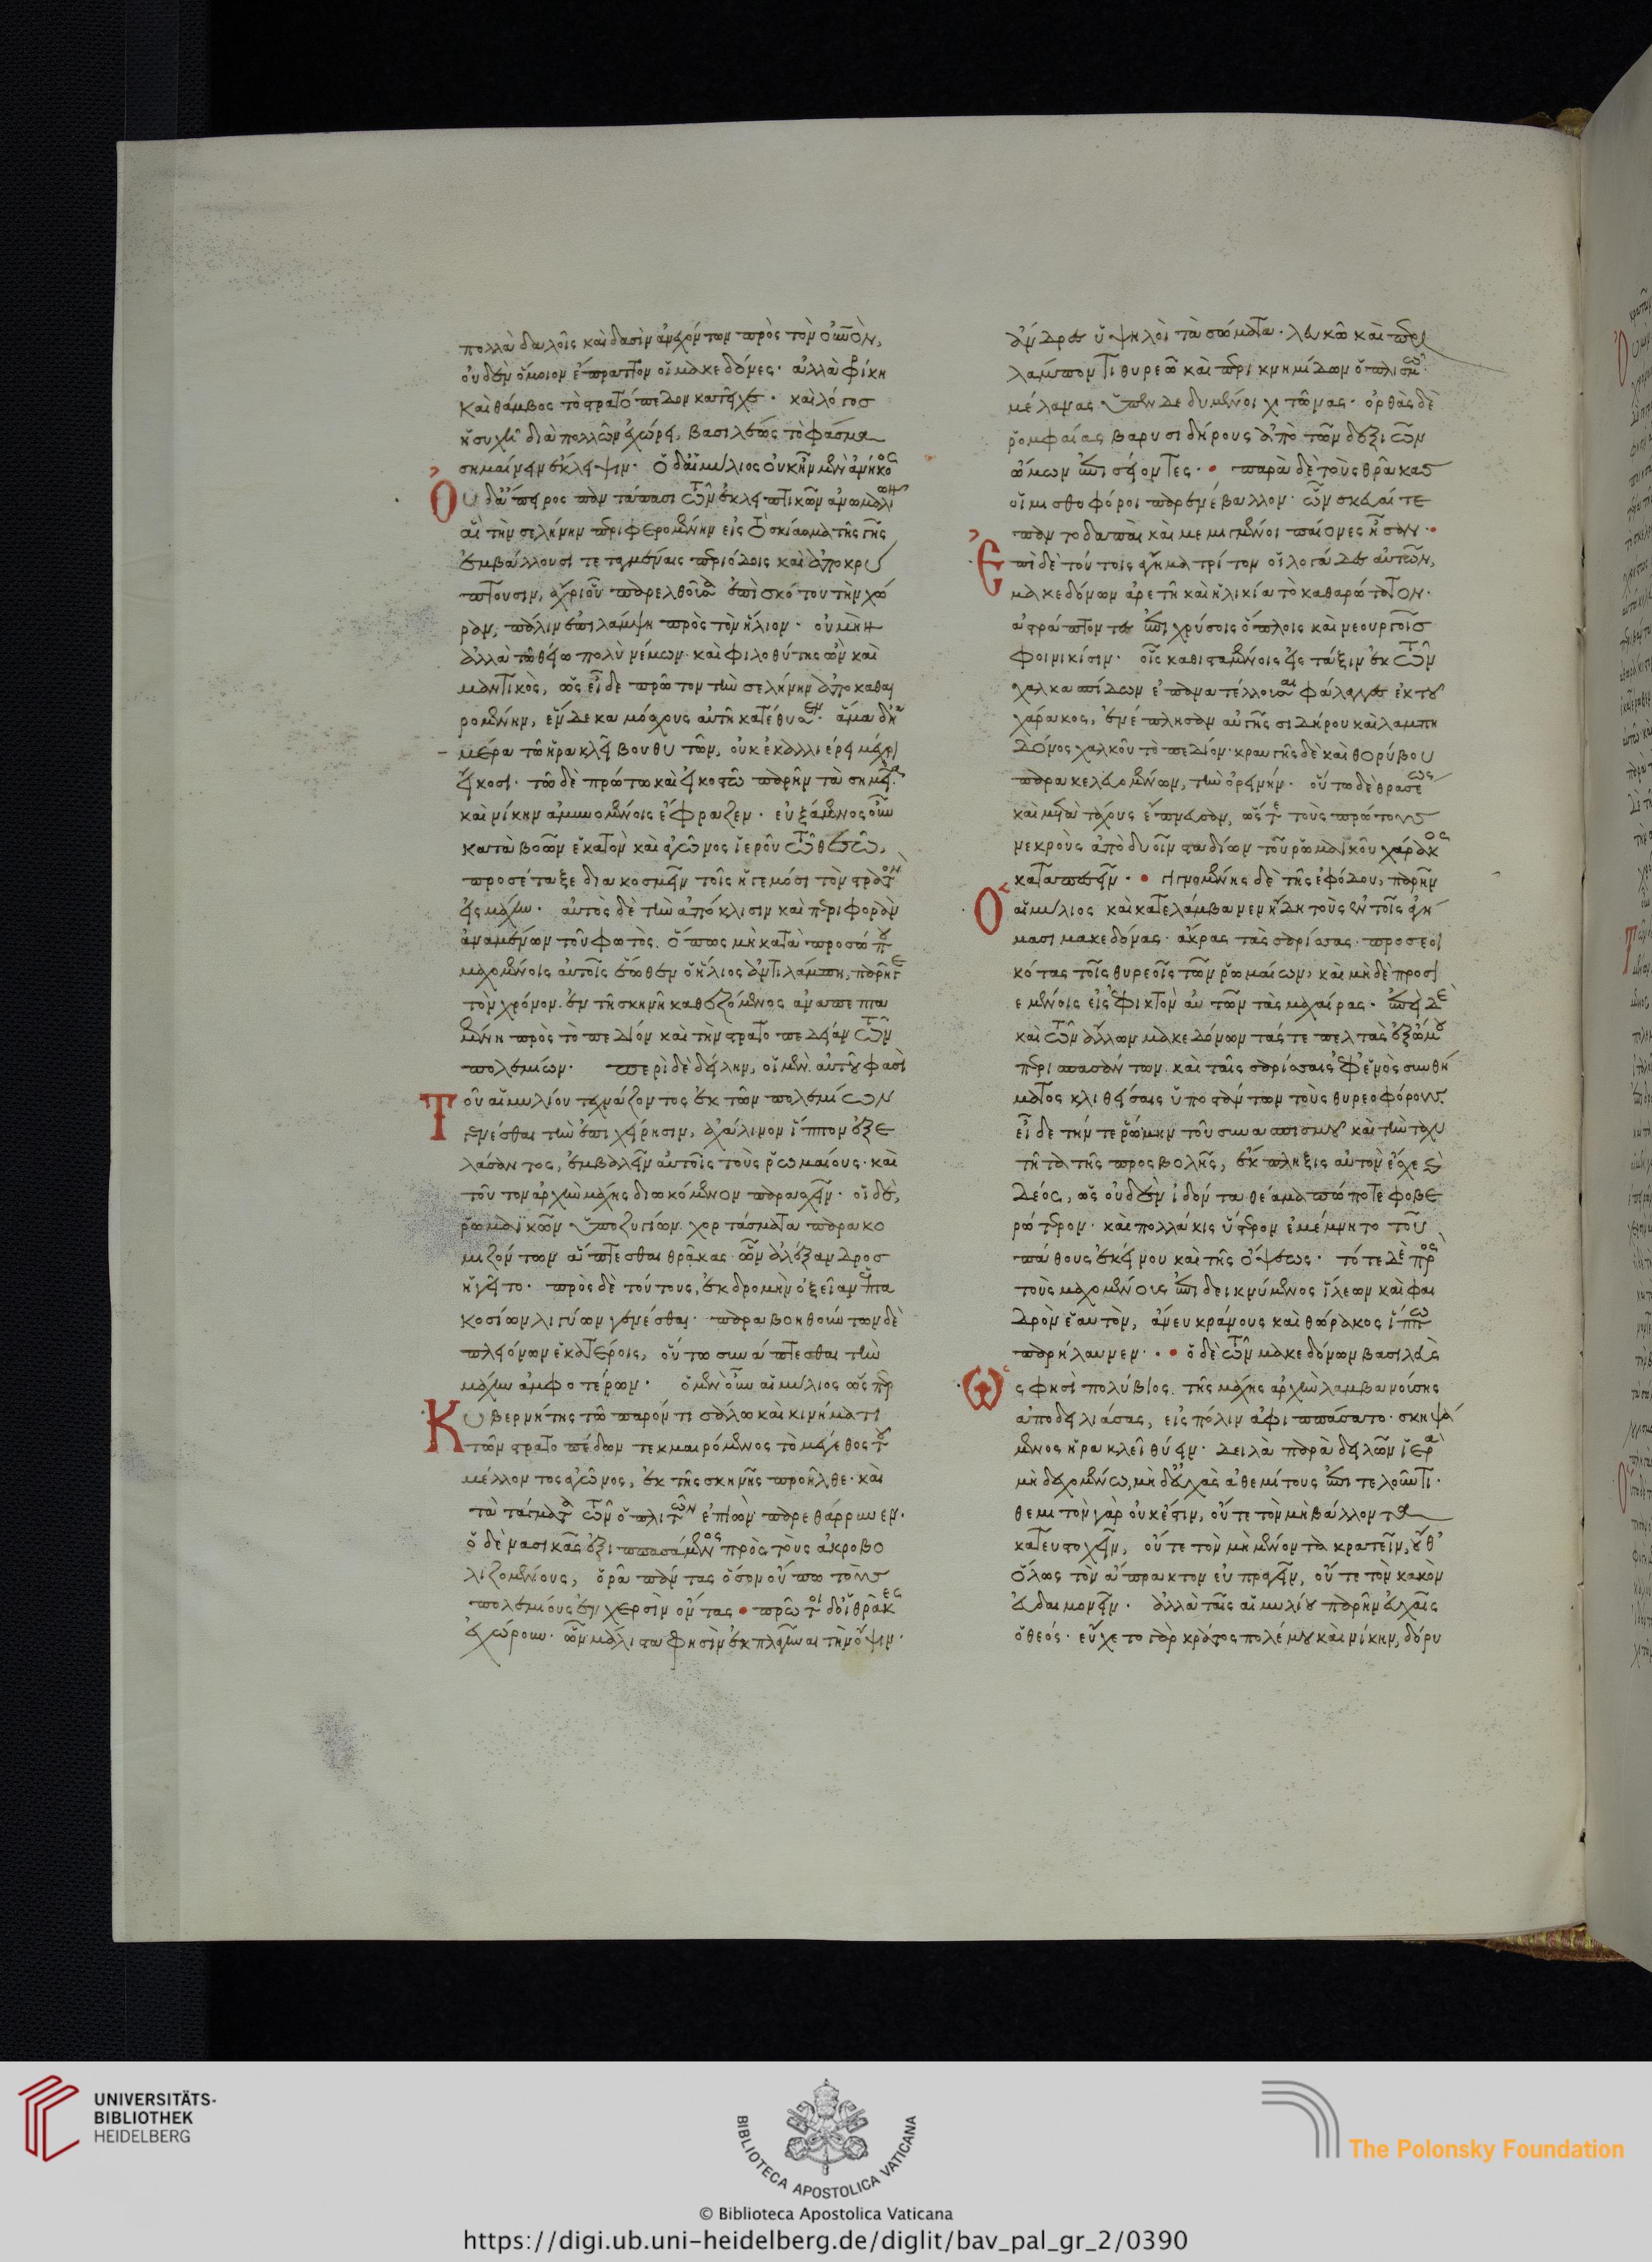 πολλὰ δαλοῖς καὶ δασὶν ἀνεχόντων πρὸς τὸν οὐνὸν,
οὐδὲν ὅμοιον ἔπραττον οἱ μακεδόνες· ἀλλὰ φρίκη
καὶ θάμβος τὸ στρατόπεδον κατεῖχε· καὶ λόγος
ἡσυχῆ διὰ πολλῶν ἐχώρει, βασιλέως τὸ φάσμα
σημαίνειν ἔκλειψιν· ὁ δ' αἰμίλιος οὐκ ἦν μὲν ἀνήκοος
οὐδ' ἄπειρος παντάπασι τῶν ἐκλειπτικῶν ἀνωμαλιῶν
αἳ τὴν σελήνην περιφερομένην εἰς τὸ σκίασμα τῆς γῆς
ἐμβάλλουσι τεταγμέναις περιόδοις καὶ ἀποκρύ
πτουσιν, ἄχρι οὗ παρελθοῦσα ἐπισκότου τὴν χώ
ραν, πάλιν ἐπιλάμψῃ πρὸς τὸν ἥλιον· οὐ μὴν
ἀλλὰ τῷ θείῳ πολὺ νέμων· καὶ φιλοθύτης ὢν καὶ
μαντικὸς, ὡς εἶδε πρῶτον τὴν σελήνην ἀποκαθαι
ρομένην, ἕνδεκα μόσχους αὐτῇ κατέθυσεν· ἅμα δ' ἡ
μέρα τῷ ἡρακλεῖ βουθυτῶν, οὐκ ἐκαλλιέρει μέχρι
εἴκοσι· τῷ δὲ πρώτῳ καὶ εἰκοστῷ παρῆν τὰ σημεῖα
καὶ νίκην ἀμυνομένοις ἔφραζεν· εὐξάμενος οὖν
κατὰ βοῶν ἑκατὸν καὶ ἀγῶνος ἱεροῦ τῷ θεῷ,
προσέταξε διακοσμεῖν τοῖς ἡγεμόσι τὸν στρατὸν
εἰς μάχην· αὐτὸς δὲ τὴν ἀπόκλισιν καὶ περιφορὰν
ἀναμένων τοῦ φωτὸς. ὅπως μὴ κατὰ προσώπου
μαχομένοις αὐτοῖς ἕωθεν ὁ ἥλιος ἀντιλάμποι, παρῆγε
τὸν χρόνον. ἐν τῇ σκηνῇ καθεζόμενος ἀναπεπτα
μένῃ πρὸς τὸ πεδίον καὶ τὴν στρατοπεδείαν τῶν
πολεμίων· περὶ δὲ δείλην, οἱ μὲν αὐτοῦ φασὶ
τοῦ αἰμιλίου τεχνάζοντος ἐκ τῶν πολεμίων
γενέσθαι τὴν ἐπιχείρησιν, ἀχάλινον ἵππον ἐξε
λάσαντος, ἐμβαλεῖν αὐτοῖς τοὺς ῥωμαίους· καὶ
τοῦτον ἀρχὴν μάχης διωκόμενον παρασχεῖν· οἱ δὲ,
ῥωμαϊκῶν ὑποζυγίων. χορτάσματα παρακο
μιζόντων ἅπτεσθαι θρᾶκας ὧν ἀλέξανδρος
ἡγεῖτο· πρὸς δὲ τούτους, ἐκδρομὴν ὀξεῖαν ἑπτα
κοσίων λιγύων γενέσθαι· παραβοηθούντων δὲ
πλειόνων ἑκατέροις, οὕτω συνάπτεσθαι τὴν
μάχην ἀμφοτέρων· ὁ μὲν οὖν αἰμίλιος ὥσπερ
κυβερνήτης τῷ παρόντι σάλῳ καὶ κινήματι
τῶν στρατοπέδων τεκμαιρόμενος τὸ μέγεθος τοῦ
μέλλοντος ἀγῶνος, ἐκ τῆς σκηνῆς προῆλθε· καὶ
τὰ τάγματα τῶν ὁπλιτῶν ἐπιὼν παρεθάρρυνεν·
ὁ δὲ νασικᾶς ἐξιππασάμενος πρὸς τοὺς ἀκροβο
λιζομένους, ὁρᾷ πάντας ὅσον οὔπω τοὺς
πολεμίους ἐν χερσὶν ὄντας· πρῶτοι δ' οἱ θρᾶκες
ἐχώρουν· ὧν μάλιστά φησὶν ἐκπλαγῆναι τὴν ὄψιν·
ἄνδρες ὑψηλοὶ τὰ σώματα· λευκῷ καὶ περι
λάμποντι θυρεῶ καὶ περικνημίδων ὁπλισμῷ·
μέλανας ὑπενδεδυμένοι χιτῶνας· ὀρθὰς δὲ
ῥομφαίας βαρυσιδήρους ἀπὸ τῶν δεξιῶν
ὤμων ἐπισείοντες· παρὰ δὲ τοὺς θρᾶκας
οἱ μισθοφόροι παρενέβαλλον· ὧν σκευαί τε
παντοδαπαὶ καὶ μεμιγμένοι παίονες ἦσαν·
ἐπὶ δὲ τούτοις ἄγημα τρίτον οἱ λογάδες αὐτῶν,
μακεδόνων ἀρετῇ καὶ ἡλικίᾳ τὸ καθαρώτατον·
ἀστράπτοντες ἐπιχρύσοις ὅπλοις καὶ νεουργοῖς
φοινικίσιν· οἷς καθισταμένοις εἰς τάξιν ἐκ τῶν
χαλκασπίδων ἐπανατέλλουσαι φάλαγγες ἐκ τοῦ
χάρακος, ἐνέπλησαν αὐγῆς σιδήρου καὶ λαμπη
δόνος χαλκοῦ τὸ πεδίον· κραυγῆς δὲ καὶ θορύβου
παρακελευομένων, τὴν ὀρεινήν· οὕτω δὲ θρασέως
καὶ μετὰ τάχους ἐπῄεσαν, ὥστε τοὺς πρώτους
νεκροὺς ἀπὸ δυοῖν σταδίων τοῦ ῥωμαϊκοῦ χάρακος
καταπεσεῖν· γιγνομένης δὲ τῆς ἐφόδου, παρῆν
ὁ αἰμίλιος καὶ κατελάμβανεν ἤδη τοὺς ἐν τοῖς ἀγή
μασι μακεδόνας· ἄκρας τὰς σαρίσας· προσερι
κότας τοῖς θυρεοῖς τῶν ῥωμαίων, καὶ μηδὲ προσι
εμένους εἰς ἐφικτὸν αὐτῶν τὰς μαχαίρας· ἐπεὶ δὲ
καὶ τῶν ἄλλων μακεδόνων τάς τε πέλτας ἐξ ὤμου
περισπασάντων. καὶ ταῖς σαρίσαις ἀφ' ἑνὸς συνθή
ματος κλιθείσαις ὑποστάντων τοὺς θυρεοφόρους·
εἶδε τήν τε ῥώμην τοῦ συνασπισμοῦ καὶ τὴν τραχύ
τητα τῆς προσβολῆς, ἔκπληξις αὐτὸν ἔσχε καὶ
δέος, ὡς οὐδὲν ἰδόντα θέαμα πώποτε φοβε
ρώτερον· καὶ πολλάκις ὕστερον ἐμέμνητο τοῦ
πάθους ἐκείνου καὶ τῆς ὄψεως· τότε δὲ πρὸς
τοὺς μαχομένους ἐπιδεικνύμενος ἵλεων καὶ φαι
δρὸν ἑαυτὸν, ἄνευ κράνους καὶ θώρακος ἵππῳ
παρήλαυνεν· ὁ δὲ τῶν μακεδόνων βασιλεὺς
ὥς φησὶ πολύβιος. τῆς μάχης ἀρχὴν λαμβανούσης
ἀποδειλιάσας, εἰς πόλιν ἀφιππάσατο· σκηψά
μενος ἡρακλεῖ θύειν· δειλὰ παρὰ δειλῶν ἱερὰ
μὴ δεχομένῳ, μηδ' εὐχὰς ἀθεμίτους ἐπιτελοῦντι·
θεμιτὸν γὰρ οὐκέστιν, οὔτε τὸν μὴ βάλλοντα
κατευστοχεῖν, οὔτε τὸν μὴ μένοντα κρατεῖν, οὔθ'
ὅλως τὸν ἄπρακτον εὐπραγεῖν, οὔτε τὸν κακὸν
εὐδαιμονεῖν· ἀλλὰ ταῖς αἰμιλίου παρῆν εὐχαῖς
ὁ θεός· εὔχετο γὰρ κράτος πολέμου καὶ νίκην, δόρυ
UNIVERSITÄTS-
BIBLIOTHEK
HEIDELBERG
BIBLIOTECA APOSTOLICA VATICANA
The Polonsky Foundation
© Biblioteca Apostolica Vaticana
https://digi.ub.uni-heidelberg.de/diglit/bav_pal_gr_2/0390